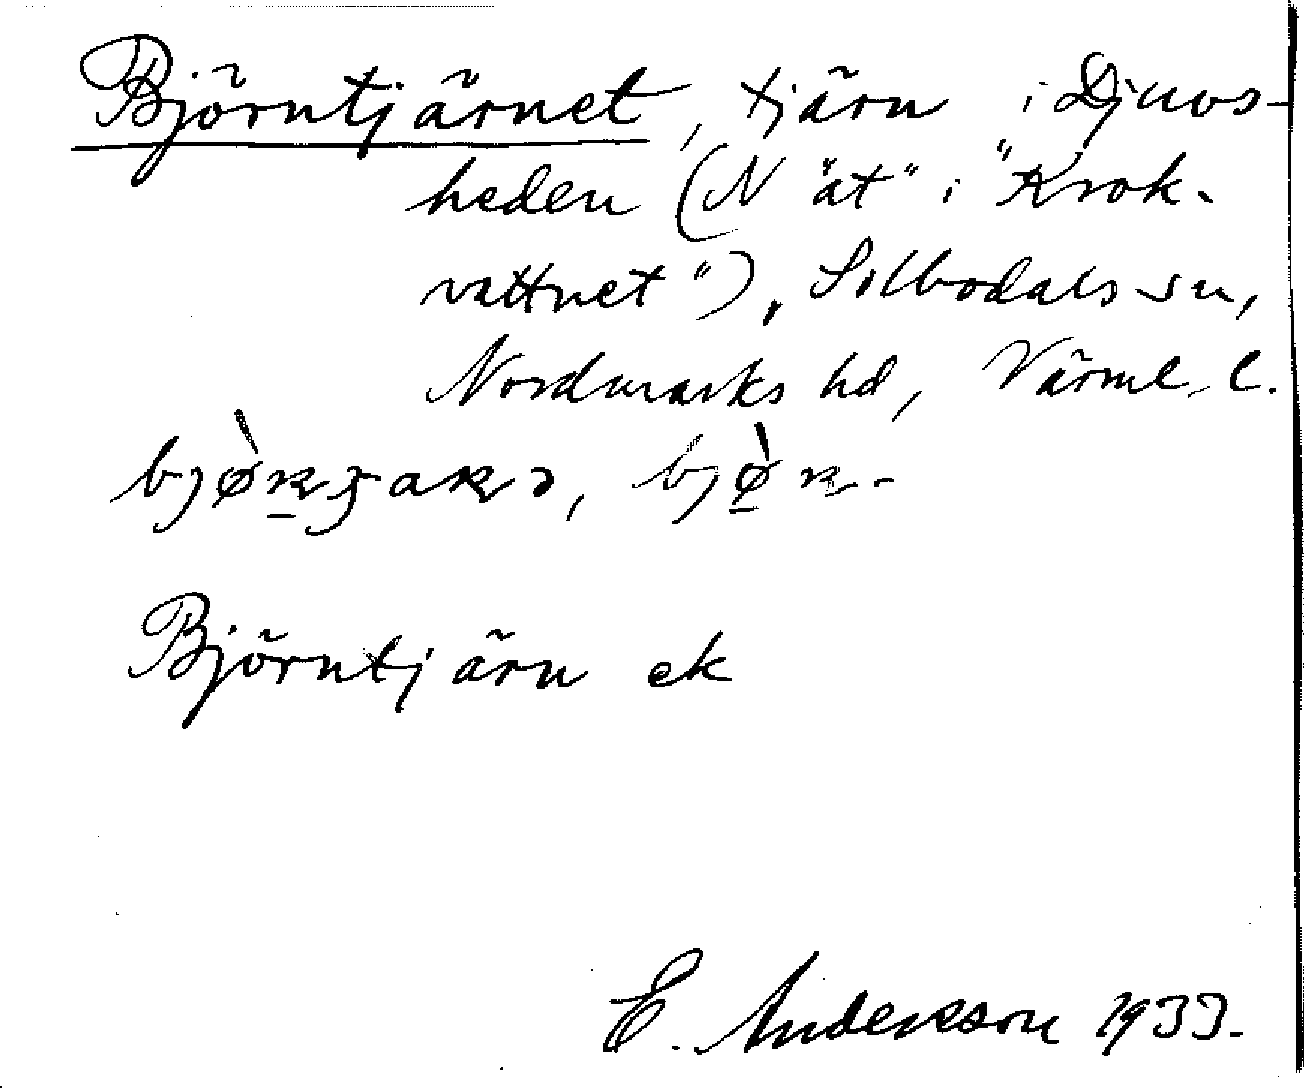 Björntjärnet, tjärn i Djuvs-
heden (N "åt" i "Krok-
vattnet"), Silbodals sn,
Nordmarks hd, Värml. l.
Björntjärn ek
E. Andersson 1933.